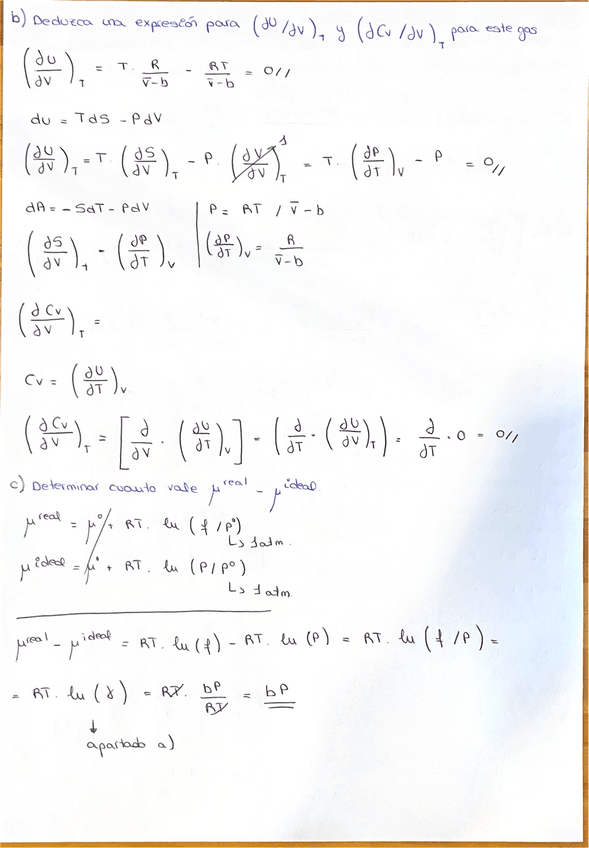 b) Deduzca una expresión para (∂U/∂V)_T y (∂Cv/∂V)_T para este gas
(∂U/∂V)_T = T · R/(V̄-b) - RT/(V̄-b) = 0//
dU = TdS - PdV
(∂U/∂V)_T = T · (∂S/∂V)_T - P · (∂V/∂V)_T^1 = T · (∂P/∂T)_V - P = 0//
dA = -SdT - PdV | P = RT / V̄-b
(∂S/∂V)_T - (∂P/∂T)_V | (∂P/∂T)_V = R/(V̄-b)
(∂Cv/∂V)_T =
Cv = (∂U/∂T)_V
(∂Cv/∂V)_T = [∂/∂V · (∂U/∂T)_V] = (∂/∂T · (∂U/∂V)_T) = ∂/∂T · 0 = 0//
c) Determinar cuanto vale μ^real - μ^ideal
μ^real = μ° + RT · ln (f/P°)
↳ 1atm.
μ^ideal = μ° + RT · ln (P/P°)
↳ 1atm
μ^real - μ^ideal = RT · ln (f) - RT · ln (P) = RT · ln (f/P) =
= RT · ln (γ) = RT · bP/RT = bP
↓
apartado a)